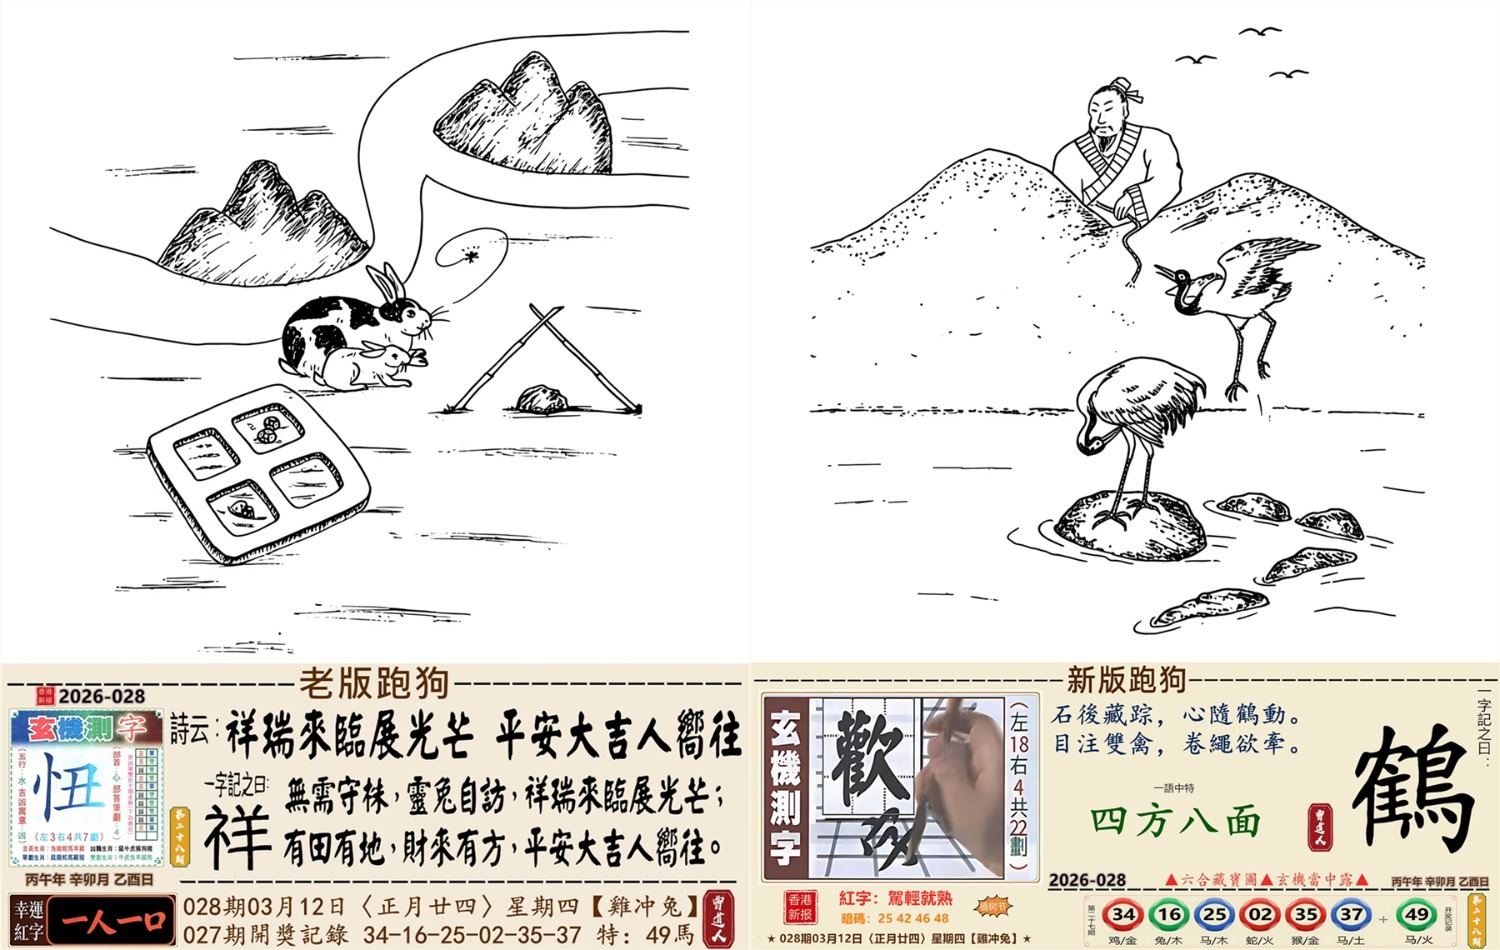 老版跑狗
香港
新报
2026-028
玄機測字
忸
(左3右4共7劃)
第二十八期
丙午年 辛卯月 乙酉日
詩云:祥瑞來臨展光芒 平安大吉人嚮往
一字記之曰:
祥
無需守株,靈兔自訪,祥瑞來臨展光芒;
有田有地,財來有方,平安大吉人嚮往。
幸運
紅字
一人一口
028期03月12日〈正月廿四〉星期四【雞冲兔】
027期開獎記錄 34-16-25-02-35-37 特:49馬
曾道人
新版跑狗
玄機測字
歡
(左18右4共22劃)
香港
新报
紅字:駕輕就熟
暗碼:25 42 46 48
植树节
★ 028期03月12日〈正月廿四〉星期四【雞冲兔】★
石後藏踪,心隨鶴動。
目注雙禽,卷繩欲牽。
一語中特
四方八面
曾道人
一字記之曰:
鶴
2026-028
▲六合藏寶圖▲玄機當中露▲
丙午年 辛卯月 乙酉日
第二十七期
34 16 25 02 35 37 + 49
鸡/金 兔/木 马/木 蛇/火 猴/金 马/土 马/火
开奖记录
第二十八期